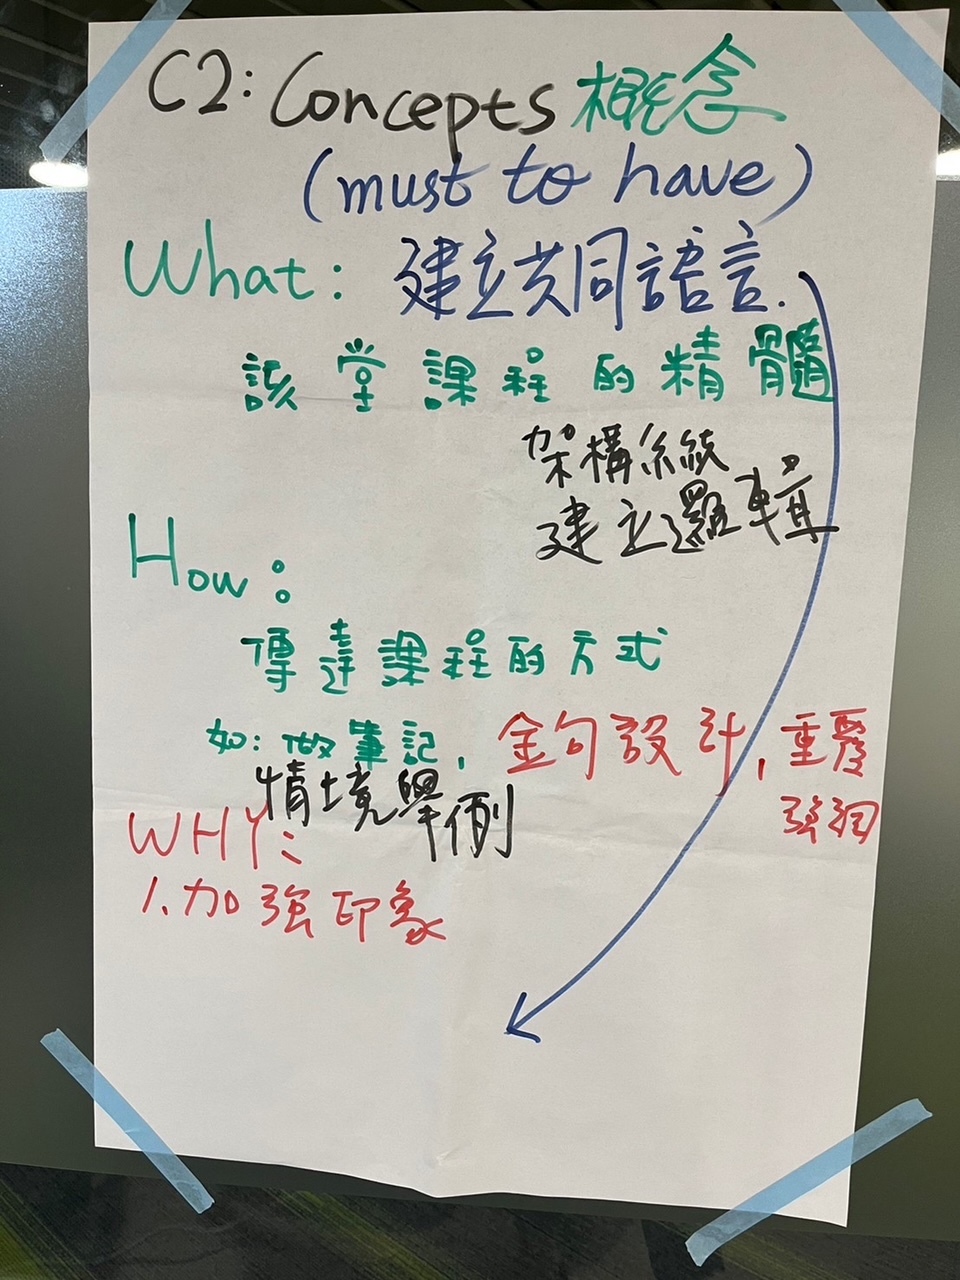 C2: Concepts 概念
(must to have)
What: 建立共同語言.
該堂課程的精髓
架構系統
建立邏輯
How:
傳達課程的方式
如: 做筆記, 金句設計, 重覆
強調
情境舉例
WHY:
1. 加強印象